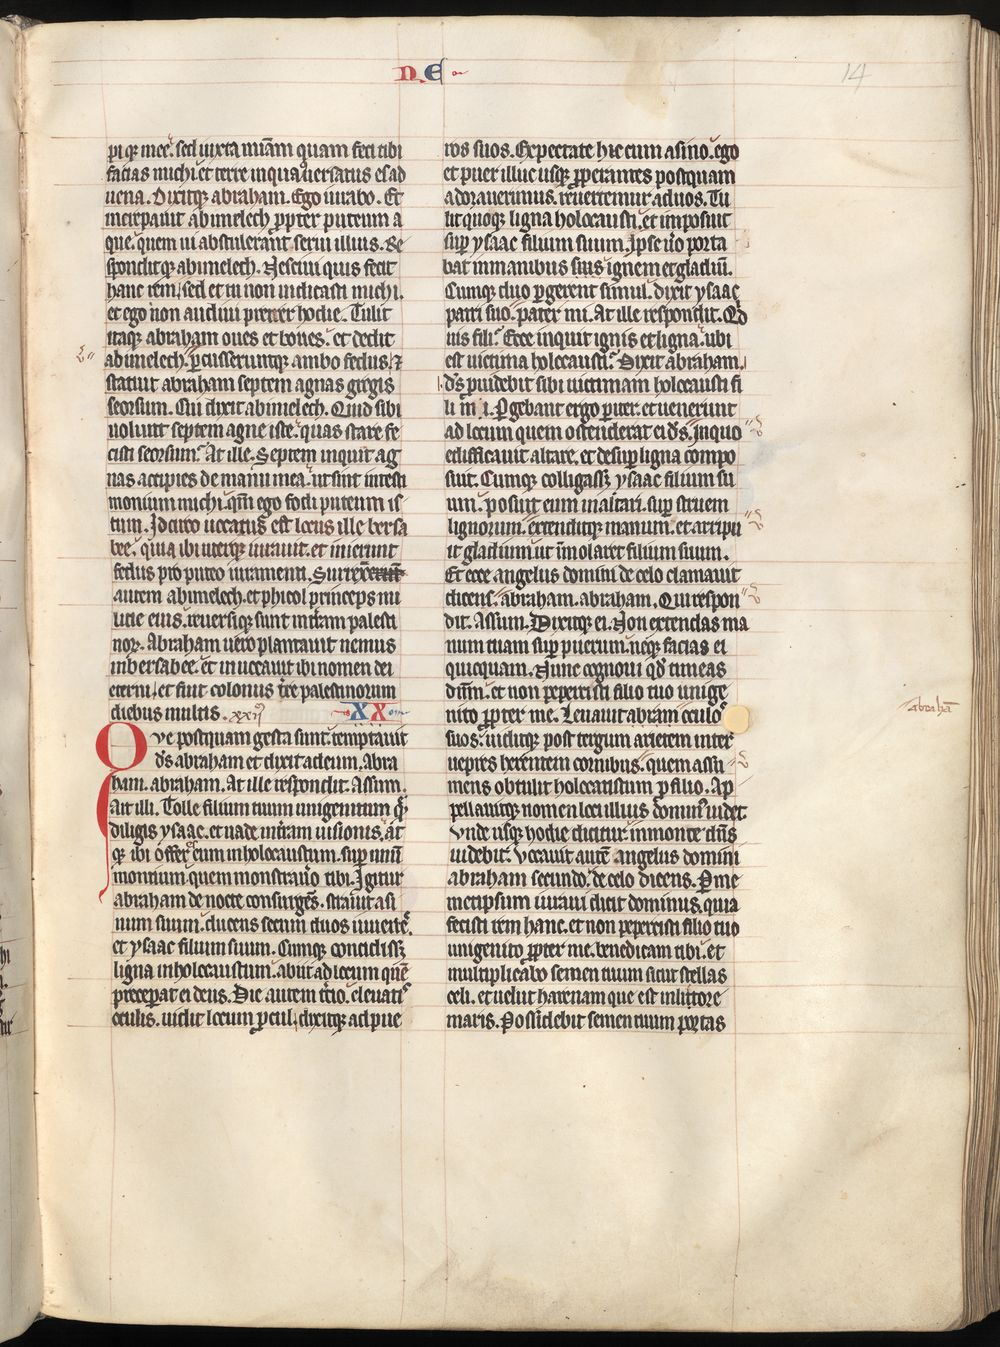 N E
14
pi q meę. sed iuxta miãm quam feci tibi
facias michi et terre in qua uersatus es ad
uena. Dixitq abraham. Ego iurabo. Et
increpauit abimelech ꝓpter puteum a
que. quem ui abstulerant serui illius. Re
sponditq abimelech. Nesciui quis fecit
hanc rem, sed et tu non indicasti michi.
et ego non audiui preter hodie. Tulit
itaq abraham oues et boues. et dedit
abimelech. ꝑcusseruntq ambo fedus. ⁊
statuit abraham septem agnas gregis
seorsum. Cui dixit abimelech. Quid sibi
uolunt septem agne iste. quas stare fe
cisti seorsum. At ille. Septem inquit ag
nas accipies de manu mea. ut sint intesti
monium michi. qm̃ ego fodi puteum is
tum. Idcirco uocatus est locus ille bersa
bee. quia ibi uterq iurauit. et inierunt
fedus pro puteo iuramenti. Surrexerunt
autem abimelech. et phicol princeps mi
licie eius. reuersiq sunt in tram palesti
noꝝ. Abraham uero plantauit nemus
in bersabee. et inuocauit ibi nomen dei
eterni, et fuit colonus tre palestinorum
diebus multis. xxij XX
Ove postquam gesta sunt. temptauit
ds abraham et dixit ad eum. Abra
ham. abraham. At ille respondit. Assum.
Ait illi. Tolle filium tuum unigenitum qͤ
diligis ysaac. et uade in tram uisionis. at
q ibi offer eum in holocaustum. suꝑ unũ
montium quem monstrauo tibi. Igitur
abraham de nocte consurgens. strauit asi
num suum. ducens secum duos iuuenes.
et ysaac filium suum. Cumq concidisset
ligna in holocaustum. abiit ad locum quẽ
preceperat ei deus. Die autem tcio. eleuatis
oculis. uidit locum ꝓcul. dixitq ad pue
ros suos. Expectate hic cum asino. ego
et puer illuc usq ꝓperantes postquam
adorauerimus. reuertemur ad uos. Tu
lit quoq ligna holocausti. et imposuit
suꝑ ysaac filium suum. Ipse uo porta
bat in manibus suis ignem et gladiũ.
Cumq duo ꝑgerent simul. dixit ysaac
patri suo. pater mi. At ille respondit. Qd
uis fili. Ecce inquit ignis et ligna. ubi
est uictima holocausti. Dixit abraham.
ds ꝓuidebit sibi uictimam holocausti fi
li mi. Pgebant ergo pariter. et uenerunt
ad locum quem ostenderat ei ds. In quo
edificauit altare, et desuꝑ ligna compo
suit. Cumq colligasset ysaac filium su
um. posuit eum in altari. suꝑ struem
lignorum. extenditq manum. et arripu
it gladium ut im̃olaret filium suum.
Et ecce angelus domini de celo clamauit
dicens. abraham. abraham. Qui respon
dit. Assum. Dixitq ei. Non extendas ma
num tuam suꝑ puerum. neq facias ei
quicquam. Nunc cognoui qd timeas
dñm. et non pepercisti filio tuo unige
nito ꝓpter me. Leuauit abram oculos
abrahã
suos. uiditq post tergum arietem inter
uepres herentem cornibus. quem assu
mens obtulit holocaustum ꝓ filio. Ap
pellauitq nomen loci illius dominus uidet
Vnde usq hodie dicitur. in monte dñs
uidebit. Vocauit autẽ angelus domini
abraham secundo. de celo dicens. P me
metipsum iuraui dicit dominus. quia
fecisti rem hanc. et non pepercisti filio tuo
unigenito ꝓpter me. benedicam tibi. et
multiplicabo semen tuum sicut stellas
celi. et uelut harenam que est in littore
maris. Possidebit semen tuum portas